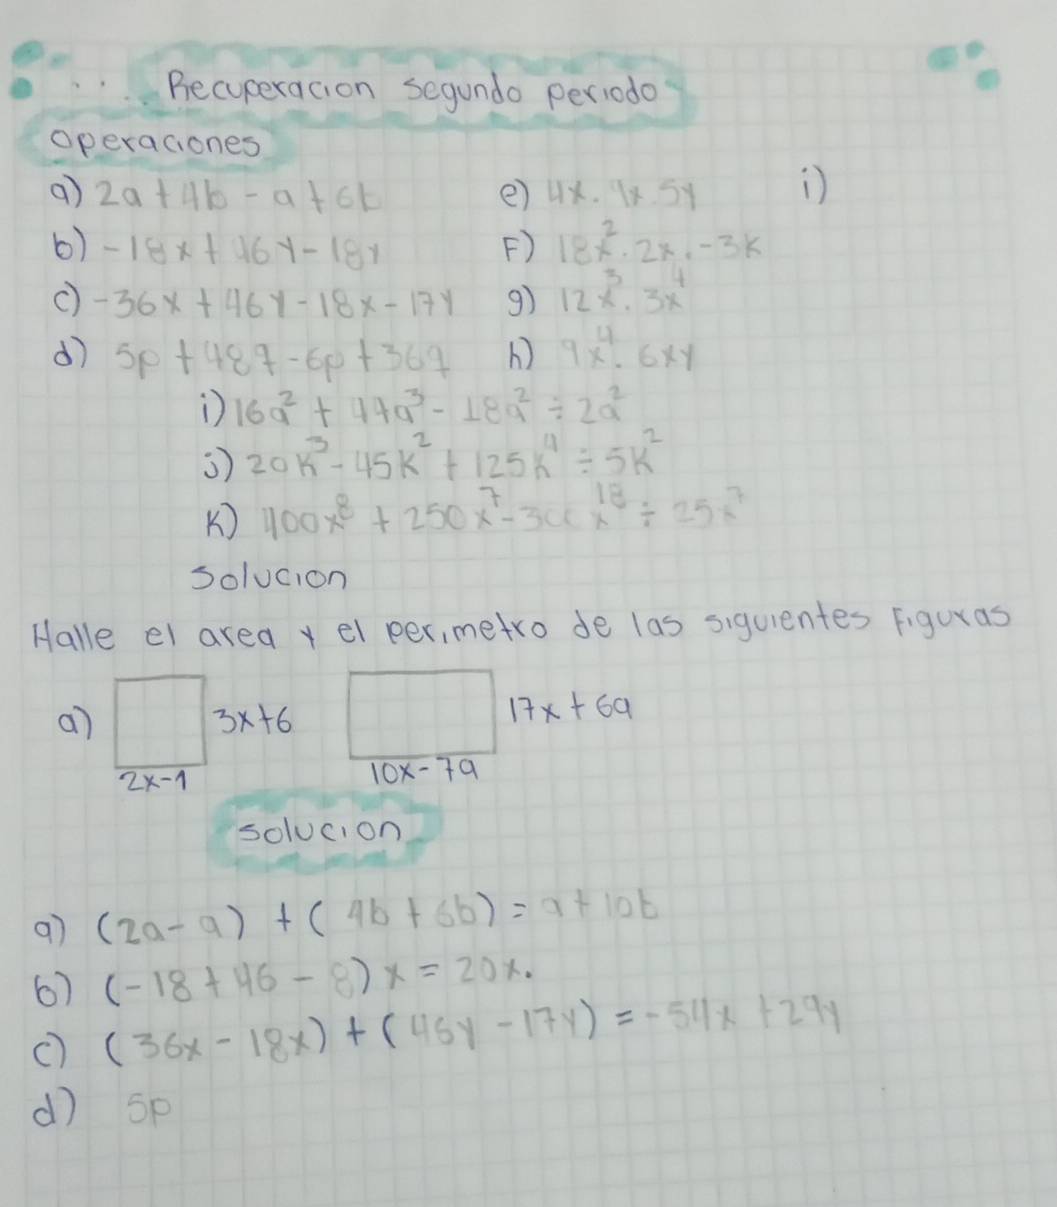 Recuperacion segundo periodo
operaciones
a) 2a + 4b - a + 6b
e) 4x . 9x . 5y
i)
b) -18x + 46y - 18y
F) 18x² . 2x . -3x
c) -36x + 46y - 18x - 17y
g) 12x³ . 3x⁴
d) 5p + 48q - 6p + 36q
h) 9x⁴ . 6xy
i) 16a² + 44a³ - 18a² ÷ 2a²
j) 20k³ - 45k² + 125k⁴ ÷ 5k²
K) 400x⁸ + 250x⁷ - 300x¹⁸ ÷ 25x⁷
Solucion
Halle el area y el perimetro de las siguientes Figuras
a) 3x+6 17x+6a
2x-1 10x-7a
solucion
a) (2a - a) + (4b + 6b) = a + 10b
b) (-18 + 46 - 8)x = 20x.
c) (36x - 18x) + (46y - 17y) = -54x + 29y
d) 5p